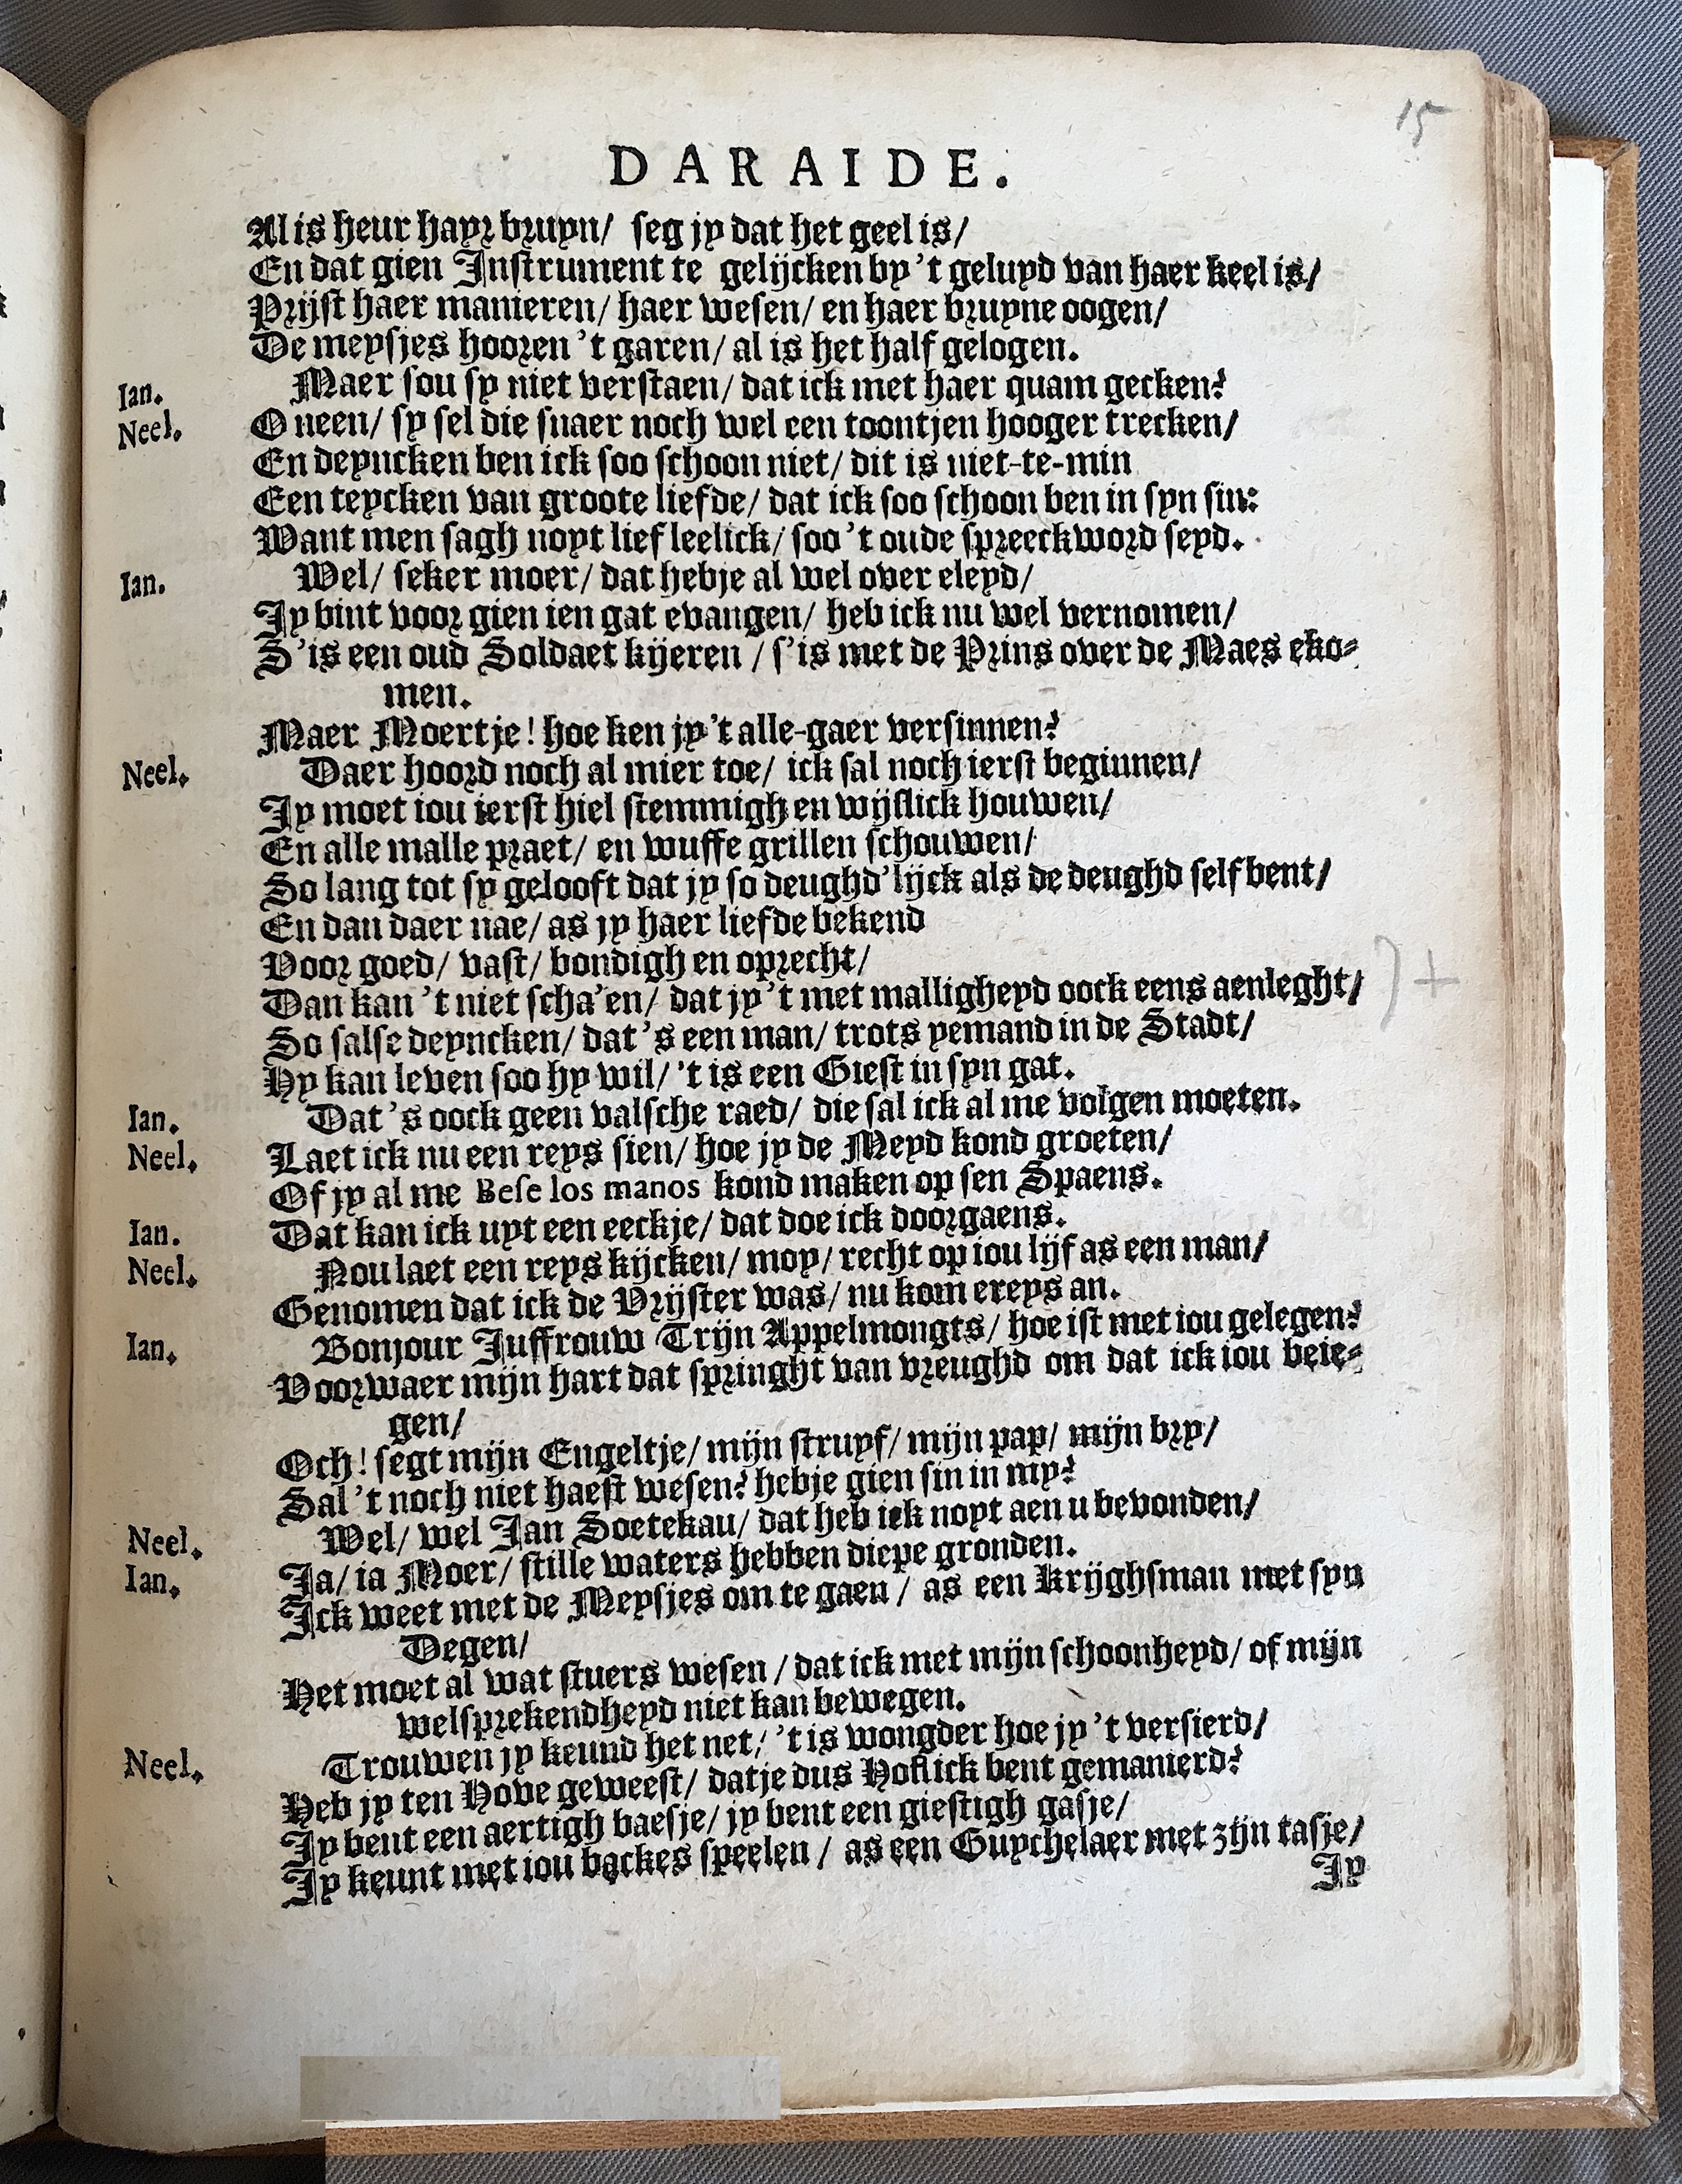 15
DARAIDE.
Al is heur hayr bruyn/ seg jy dat het geel is/
En dat gien Instrument te gelijcken by 't geluyd van haer keel is/
Prijst haer manieren/ haer wesen/ en haer bruyne oogen/
De meysjes hooren 't garen/ al is het half gelogen.
Ian. Maer sou sy niet verstaen/ dat ick met haer quam gecken?
Neel. O neen/ sy sel die snaer noch wel een toontjen hooger trecken/
En deyncken ben ick soo schoon niet/ dit is niet-te-min
Een teycken van groote liefde/ dat ick soo schoon ben in syn sin:
Want men sagh noyt lief leelick/ soo 't oude spreeckword seyd.
Ian. Wel/ seker moer/ dat hebje al wel over eleyd/
Jy bint voor gien ien gat evangen/ heb ick nu wel vernomen/
S'is een oud Soldaet kijeren / s'is met de Prins over de Maes eko-
men.
Maer Moertje! hoe ken jy 't alle-gaer versinnen?
Neel. Daer hoord noch al mier toe/ ick sal noch ierst beginnen/
Jy moet iou ierst hiel stemmigh en wijslick houwen/
En alle malle praet/ en wuffe grillen schouwen/
So lang tot sy gelooft dat jy so deughd'lijck als de deughd self bent/
En dan daer nae/ as jy haer liefde bekend
Voor goed/ vast/ bondigh en oprecht/
Dan kan 't niet scha'en/ dat jy 't met malligheyd oock eens aenleght/
So salse deyncken/ dat 's een man/ trots yemand in de Stadt/
Hy kan leven soo hy wil/ 't is een Giest in syn gat.
Ian. Dat 's oock geen valsche raed/ die sal ick al me volgen moeten.
Neel. Laet ick nu een reys sien/ hoe jy de Meyd kond groeten/
Of jy al me Bese los manos kond maken op sen Spaens.
Ian. Dat kan ick uyt een eeckje/ dat doe ick doorgaens.
Neel. Nou laet een reys kijcken/ moy/ recht op iou lijf as een man/
Genomen dat ick de Vrijster was/ nu kom ereys an.
Ian. Bonjour Juffrouw Trijn Appelmongts/ hoe ist met iou gelegen?
Voorwaer mijn hart dat springht van vreughd om dat ick iou beie-
gen/
Och! segt mijn Engeltje/ mijn struyf/ mijn pap/ mijn bry/
Sal 't noch niet haest wesen? hebje gien sin in my?
Neel. Wel/ wel Jan Soetekau/ dat heb ick noyt aen u bevonden/
Ian. Ja/ ia Moer/ stille waters hebben diepe gronden.
Ick weet met de Meysjes om te gaen / as een Krijghsman met syn
Degen/
Het moet al wat stuers wesen / dat ick met mijn schoonheyd/ of mijn
welsprekendheyd niet kan bewegen.
Neel. Trouwen jy keund het net/ 't is wongder hoe jy 't versierd/
Heb jy ten Hove geweest/ datje dus Hoflick bent gemanierd?
Jy bent een aertigh baesje/ jy bent een giestigh gasje/
Jy keunt met iou backes speelen / as een Guychelaer met zijn tasje/
Jy